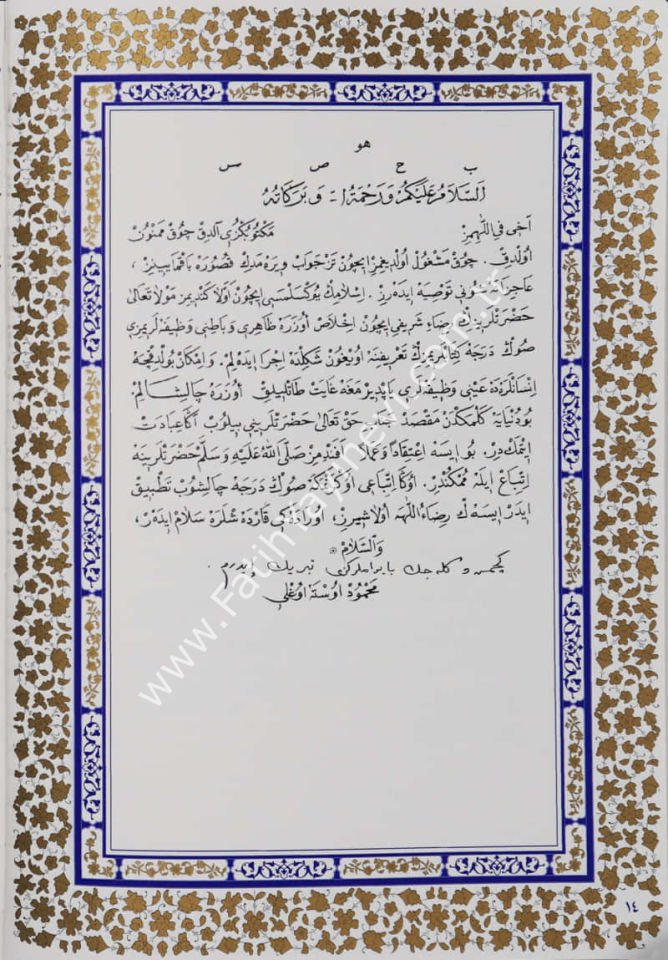 هو
ب ح ص س
اَلسَّلَامُ عَلَيْكُمْ وَرَحْمَةُ ا - وَبَرَكَاتُهُ
اَخِى فِى اللّٰهِمِزْ مَكْتُوبُكْزِى آلدِقْ چُوقْ مَمْنُونْ
اُولْدِقْ . چُوقْ مَشْغُولْ اُولْدِيغِمِزْ اِيچُونْ تَزْ جَوَابْ وِيرَهمَدِكْ قُصُورَه بَاقْمَايِيكِزْ ،
عَاجِزَانَه تَوْصِيَه اِيدَهرِزْ . اِسْلَامِكْ يُوكْسَلْمَسِى اِيچُونْ اَوَّلَا كَنْدِيمِزْ مَوْلَا تَعَالَى
حَضْرَتْلَرِينِكْ رِضَاءِ شَرِيفِى اِيچُونْ اِخْلَاصْ اُوزَرَه ظَاهِرِى وَبَاطِنِى وَظِيفَه لَرِيمِزِى
صُوكْ دَرَجَه كِتَابْلَرِيمِزِكْ تَعْرِيفِنَه اُويْغُونْ شَكِلْدَه اِجْرَا اِيدَهلِمْ . وَاِمْكَانْ بُولْدُقْجَه
اِنْسَانْلَرَدَه عَيْنِى وَظِيفَه لَرِى يَاپْدِيرْمَغَه غَايَتْ طَاتْلِيلِقْ اُوزَرَه چَالِيشَالِمْ
بُودُنْيَايَه كَلْمَكْدَنْ مَقْصَدْ جَنَابِ حَقْ تَعَالَى حَضْرَتْلَرِينِى بِيلُوبْ اَكَا عِبَادَتْ
اِتْمَكْدِرْ . بُو اِيسَه اِعْتِقَادًا وَعَمَلًا اَفَنْدِمِزْ صَلَّى اللّٰهُ عَلَيْهِ وَسَلَّمْ حَضْرَتْلَرِينَه
اِتِّبَاعْ اِيلَه مُمْكِنْدِرْ . اُوكَا اِتِّبَاعِى اُوكْرَنَرَكْ صُوكْ دَرَجَه چَالِيشُوبْ تَطْبِيقْ
اِيدَرْ اِيسَه كْ رِضَاءُ اللّٰهَه اُولَاشِيرِزْ ، اُورَادَهكِى قَارْدَهشْلَرَه سَلَامْ اِيدَهرْ ،
وَالسَّلَامُ
كچمش و كله جك بايراملركزى تبريك ايدرم .
مَحْمُودْ اُوسْتَه اُوغْلِى
١٤
www.Fatihtayinevi.com.tr